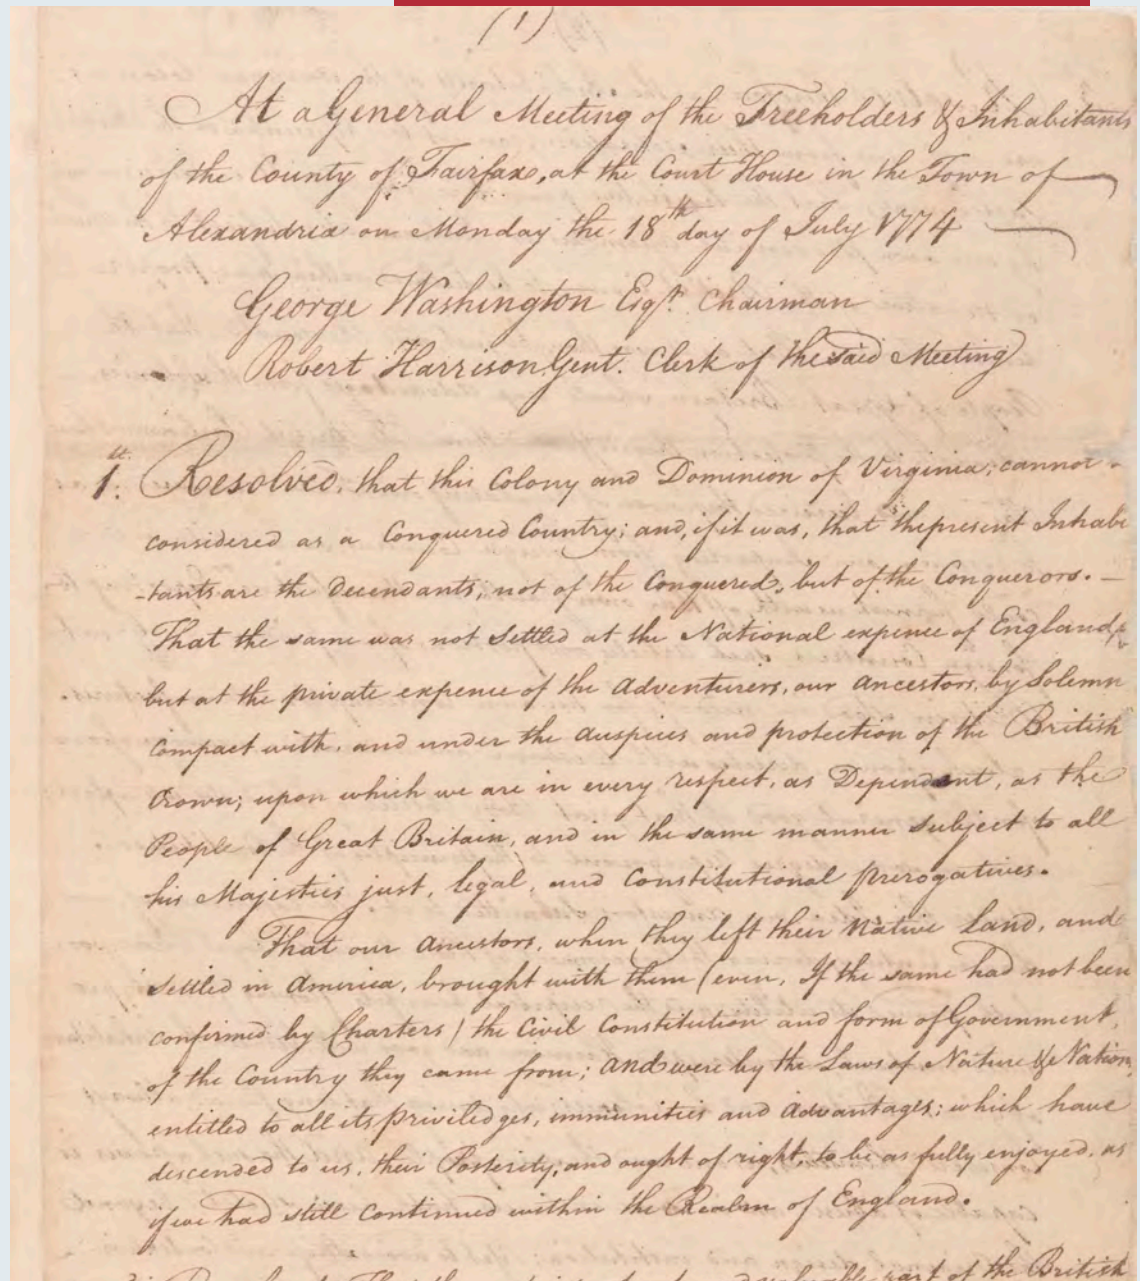 (1)
At a General Meeting of the Freeholders & Inhabitants
of the County of Fairfax, at the Court House in the Town of
Alexandria on Monday the 18th day of July 1774
George Washington Esqr. Chairman
Robert Harrison Gent. Clerk of the said Meeting
1st. Resolved, that this Colony and Dominion of Virginia, cannot
considered as a Conquered Country; and, if it was, that the present Inhabi
-tants are the Decendants, not of the Conquered, but of the Conquerors. —
That the same was not Settled at the National expence of England,
but at the private expence of the Adventurers, our Ancestors, by Solemn
Compact with, and under the auspices and protection of the British
Crown; upon which we are in every respect, as Dependant, as the
People of Great Britain, and in the same manner subject to all
his Majesties just, legal, and Constitutional prerogatives.
That our Ancestors, when they left their Native Land, and
settled in America, brought with them (even, If the same had not been
confirmed by Charters) the Civil Constitution and form of Government,
of the Country they came from; and were by the Laws of Nature & Nations,
entitled to all its priviledges, immunities and Advantages; which have
descended to us, their Posterity, and ought of right, to be as fully enjoyed, as
if we had still continued within the Realm of England.
part of the British